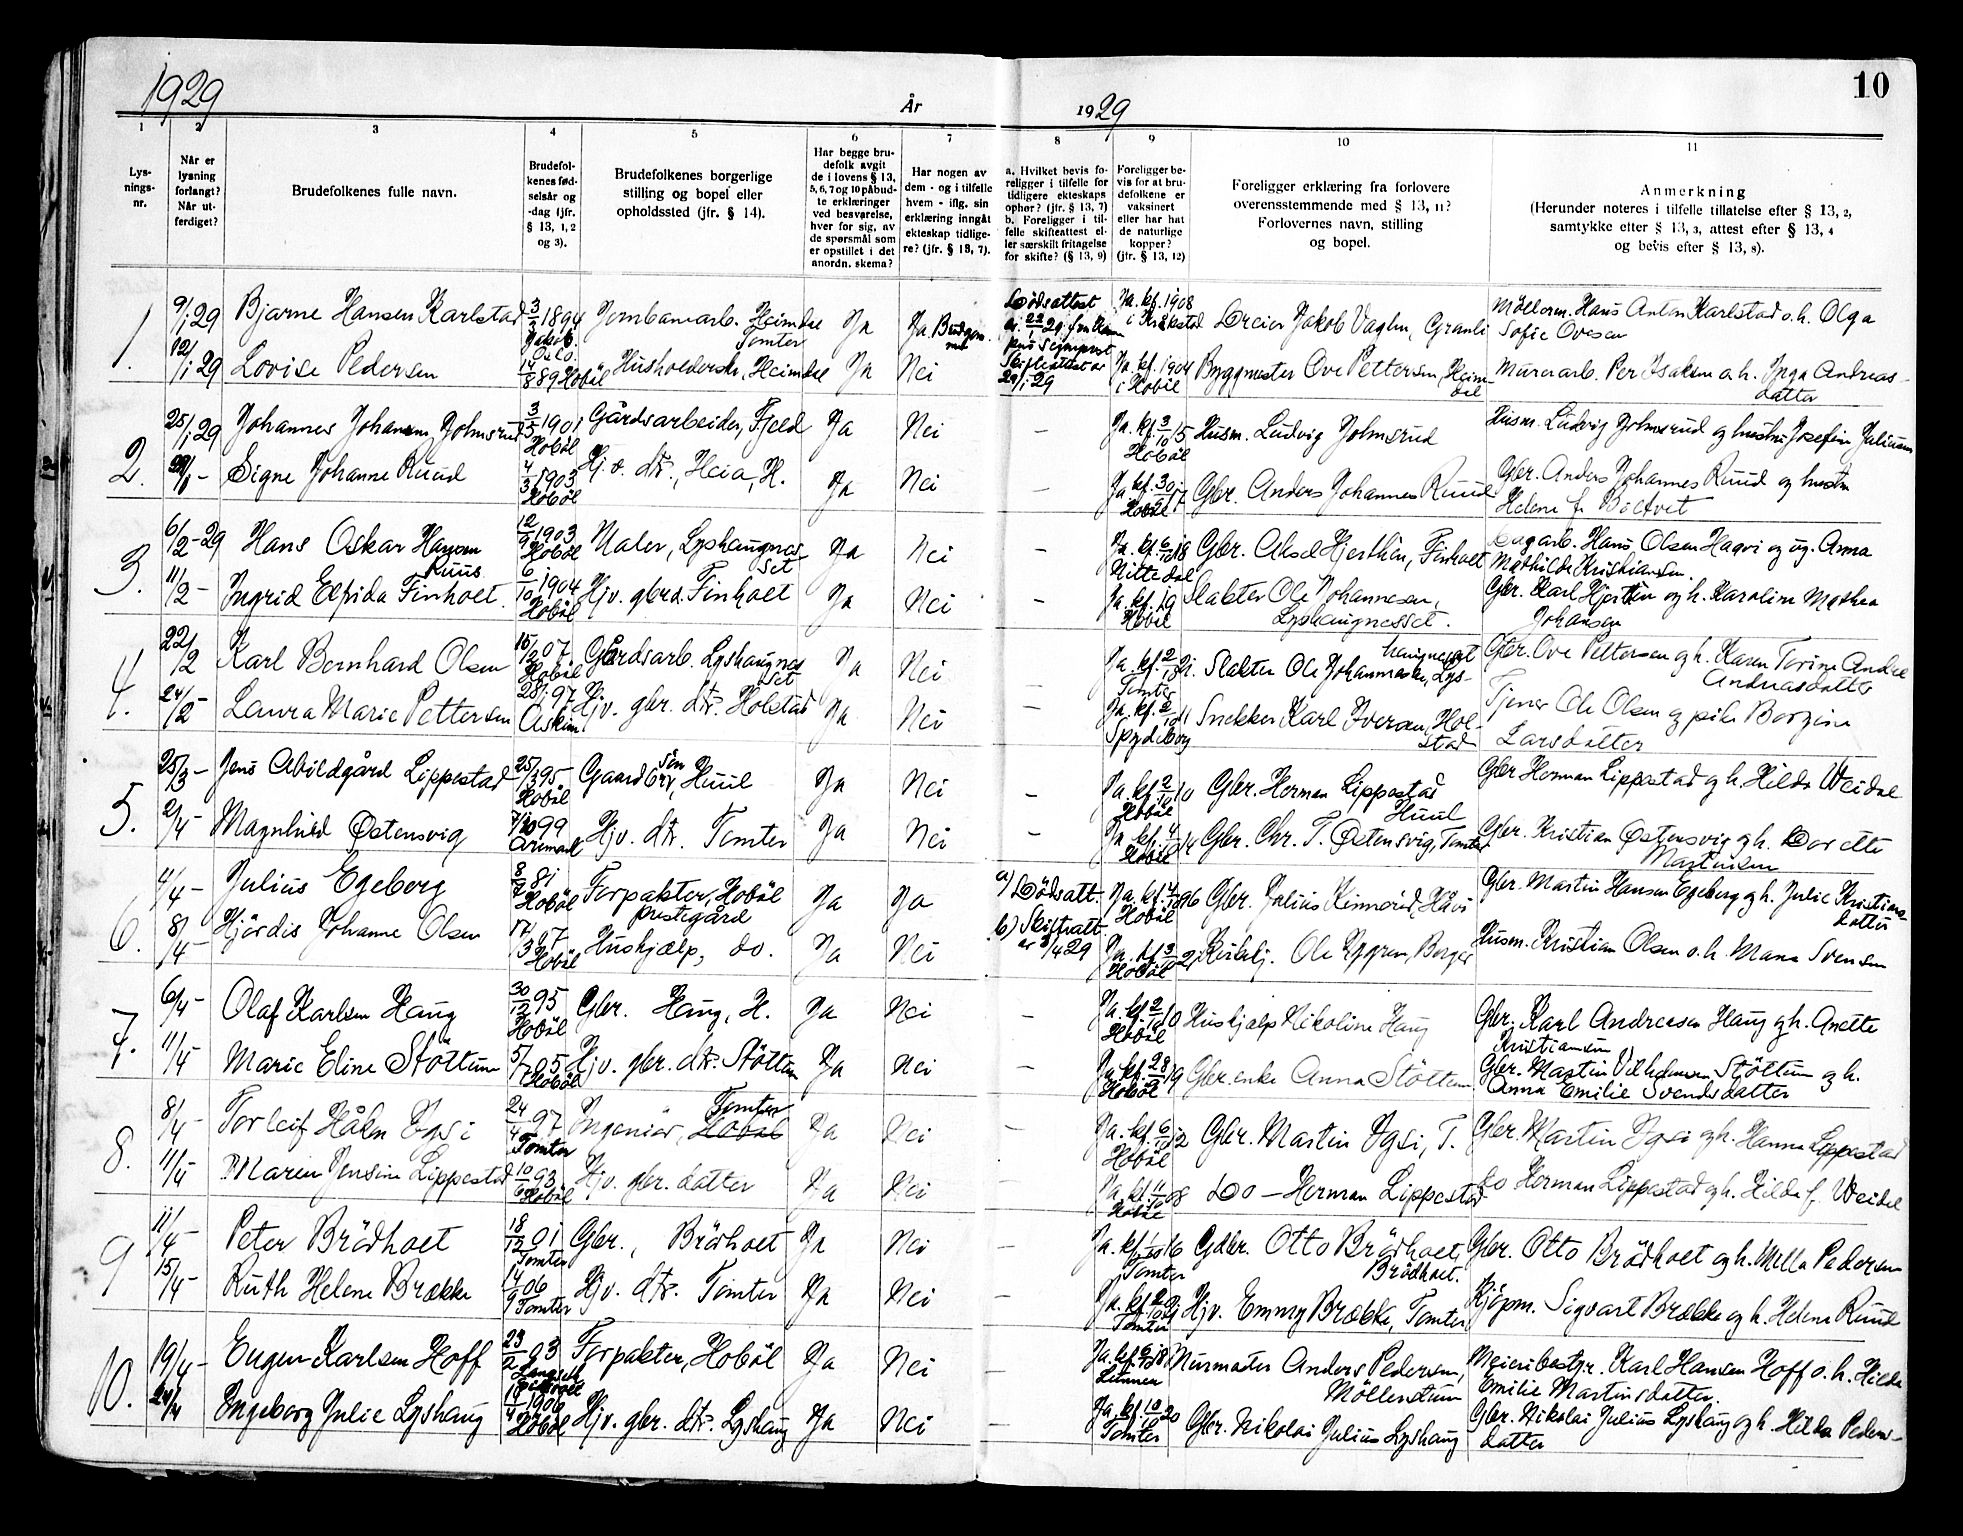 1929
År
1929
10
1
2
3
4
5
6
7
8
9
10
11
Lys-
nings-
nr.
Når er
lysning
forlangt?
Når ut-
ferdiget?
Brudefolkenes fulle navn.
Brudefol-
kenes fød-
selsår og
-dag (jfr.
§ 13, 1, 2
og 3).
Brudefolkenes borgerlige
stilling og bopel eller
opholdssted (jfr. § 14).
Har begge bru-
defolk avgit
de i lovens § 13,
5, 6, 7 og 10 påbud-
te erklæringer
ved besvørelse,
hver for sig, av
de spørsmål som
er opstillet i det
anordn. skema?
Har nogen av
dem - og i tilfelle
hvem - iflg. sin
erklæring inngåt
ekteskap tidlige-
re? (jfr. § 13, 7).
a. Hvilket bevis fo-
religger i tilfelle for
tidligere ekteskaps
ophør? (jfr. § 13, 7)
b. Foreligger i til-
felle skifteattest el-
ler særskilt fritagelse
for skifte? (§ 13, 9)
Foreligger be-
vis for at bru-
defolkene er
vaksinert
eller har hat
de naturlige
kopper?
(jfr. § 13, 12)
Foreligger erklæring fra forlovere
overensstemmende med § 13, 11?
Forlovernes navn, stilling
og bopel.
Anmerkning
(Herunder noteres i tilfelle tillatelse efter § 13, 2,
samtykke efter § 13, 3, attest efter § 13, 4
og bevis efter § 13, 8).
1. 9/1 29 Bjarne Hansen Karlstad 3/3 1894 Jernbanearb. Heimdal Tomter Ja Ja Brudgommen Dødsattest Ja. kf. 1908 i Jakob Vaglen, Granli Hans Anton Karlstad o.h. Olga
Oslo. Sofie Ovesen
12/1 29 Lovise Pedersen 14/8 89 Hobøl Husholderske, Heimdal Ja Nei Skifteattest av 29/1 29 Ja. kf. 1904 i Hobøl Byggmester Ove Pettersen, Heimdal Murerarb. Per Isaksen o.h. Inga Andreas-
datter
2. 25/1 29 Johannes Johansen Johnsrud 3/5 1901 Hobøl Gårdsarbeider, Fjeld Ja Nei — Ja. kf. 3/10 15 Hobøl Husm. Ludvig Johnsrud Husm. Ludvig Johnsrud og hustru Josefine Juliussen
Signe Johanne Ruud 4/3 1903 Hobøl Hj.v. dtr., Heia, H. Ja Nei — Ja kf. 30/9 17 Hobøl Gbr. Anders Johannes Ruud Gbr. Anders Johannes Ruud og hustru
Helene f. Böltvet
3. 6/2-29 Hans Oskar Hansen Ruus 12/9 1903 Hobøl Maler, Lyshaugnes-
set Ja Nei — Ja. kf. 6/10 18 Nittedal Gbr. Aksel Hjerthén, Finholt Hans Olsen Hagvi og ug. Anna
Mathilde Kristiansen.
11/2- Ingrid Elfrida Finholt. 6/10 1904 Hobøl Hjv. gbrd. Finholt Ja Nei — Ja. kf. 19 Hobøl Slakter Ole Johannesen,
Lyshaugnesset. Gbr. Karl Hjerthén og h. Karoline Mathea
Johansen
4. 22/2 Karl Bernhard Olsen 15/2 07 Hobøl Gårdsarb. Lyshaugnes
set Ja Nei — Ja. kf. 2/10 21. Tomter Slakter Ole Johannesen, Lys-
haugnesset Gbr. Ove Pettersen og h. Karen Torine Andre
Andreasdatter
24/2- Laura Marie Pettersen 28/1 97 Askim Hjv. gbr. dtr. Holstad Ja Nei — Ja. kf. 2/10 11 Spydeberg Snekker Karl Iversen, Hol-
stad Tjener Ole Olsen og pike Borgine
Larsdatter
5. 25/3- Jens Abildgård Lippestad 25/3 95 Hobøl Gaardbr. sön, Huul Ja Nei — Ja. kf. 2/10 10 Hobøl Gbr. Herman Lippestad
Huul Gbr Herman Lippestad og h. Hilda Weidal
2/4- Magnhild Østensvig 7/10 99 Aremark Hjv. dtr. Tomter Ja Nei — Ja kf. 4/10 14 Hobøl Gbr. Chr. T. Østensvig, Tomter Gbr. Kristian Østensvig og h. Dorette
Martinsen
6. 4/4- Julius Egeberg 8/7 81 Hobøl Forpakter, Hobøl
prestegård Ja Ja a) Dödsatt. Ja. kf. 4/10 96 Hobøl Gbr. Julius Kinnerød, Gbr. Martin Hansen Egeberg og h. Julie Kristians-
datter
8/4- Hjördis Johanne Olsen 17/3 07 Hobøl Hushjælp, do. Ja Nei b) Skifteatt. av 4/4 29 Ja. kf. 3/10 21 Hobøl Kirketj. Ole Nygren, Borger Husm. Kristian Olsen o.h. Mana Svensen
7. 6/4- Olaf Karlsen Haug 30/12 95 Hobøl Gbr. Haug, H. Ja Nei — Ja. kf. 2/10 10 Hobøl Hushjælp Nikoline Haug Gbr. Karl Andreesen Haug og h. Anette
Kristiansen
11/4- Marie Eline Stöttum 5/7 05 Hobøl Hjv. gbr. dtr. Stöttum Ja Nei — Ja kf. 28/9 19 Hobøl Gbr. enke Anna Stöttum Gbr. Martin Vilhelmsen Stöttum og h.
Anna Emilie Svendsdatter
8. 8/4- Torleif Håkon Igsi 24/4 97 Tomter Ingeniør, Hobøl Tomter Ja Nei — Ja. kf. 6/10 12 Hobøl Gbr. Martin Igsi, T. Gbr. Martin Igsi og h. Hanna Lippestad
11/4- Maren Jensine Lippestad 10/6 93 Hobøl Hjv. gbr. datter Ja Nei — Ja. kf. 11/10 08 Hobøl Do - Herman Lippestad Do Herman Lippestad og h. Hilda f. Weidal
9 11/4- Peter Brödholt 18/12 01 Tomter Gbr., Brödholt Ja Nei — Ja. kf. 1/10 16 Tomter Gdbr. Otto Brödholt,
Brödholt. Gbr. Otto Brödholt og h. Mella Pedersen
15/4- Ruth Helene Brække 14/9 06 Tomter Hjv. dtr. Tomter Ja Nei — Ja. kf. Tomter Hjv. Emmy Brække, Tomter, Kjöpm. Sigvart Brække og h. Helene Ruud
10. 19/4- Eugen Karlsen Hoff 23/2 03 Forpakter, Hobøl Ja Nei — Ja. kf. 6/10 18. Lunner Murmester Anders Pedersen,
Möllerstuen Meieribestyr. Karl Hansen Hoff o.h. Hilda
Emilie Martinsdatter.
24/4 Ingeborg Julie Lyshaug 18/4 1906 Hobøl Hjv. gbr. dtr. Lyshaug Ja Nei — Ja. kf. 10/10 20 Tomter Gbr. Nikolai Julius Lyshaug Gbr. Nikolai Julius Lyshaug og h. Hilda Peders-
datter